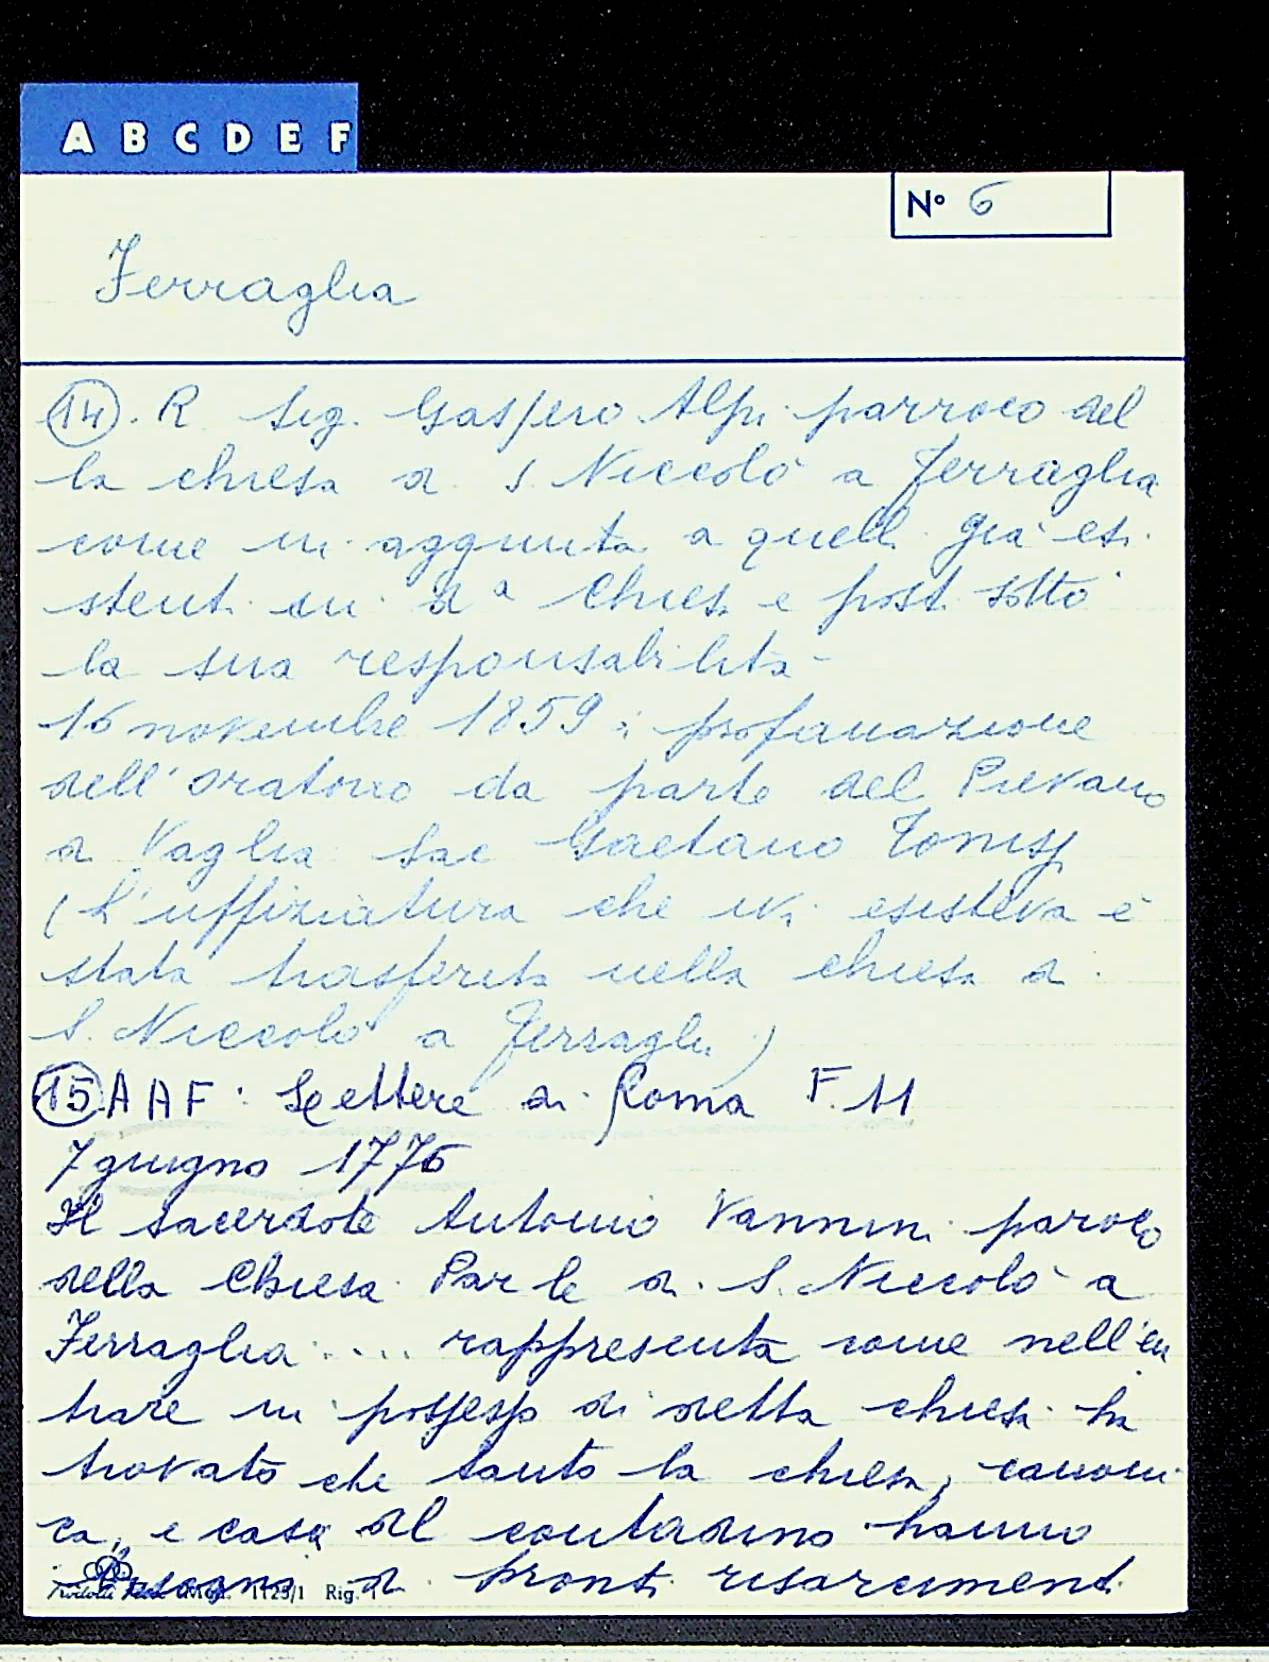 A B C D E F
N° 6
Ferraglia
14. R Sig. Gaspero Alpi parroco del
la chiesa di S. Niccolò a Ferraglia
come in aggiunta a quelli già esi
stenti in dª Chiesa e posti sotto
la sua responsabilità -
16 novembre 1859: profanazione
dell'oratorio da parte del Pievano
di Vaglia Sac Gaetano
(L'uffiziatura che ivi esisteva è
stata trasferita nella chiesa di
S. Niccolò a Ferraglia)
15 AAF: Lettere di Roma F. 11
7 giugno 1776
Il sacerdote Antonio Vannini paroco
della Chiesa Par le di S. Niccolò a
Ferraglia .... rappresenta come nell'en
trare in possesso di detta chiesa ha
trovato che tanto la chiesa, canoni
ca, e casa del contadino hanno
bisogno di pronti risarcimenti
1125/1 Rig. 1